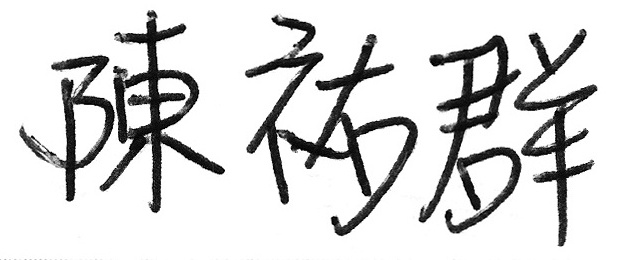 陳祐群